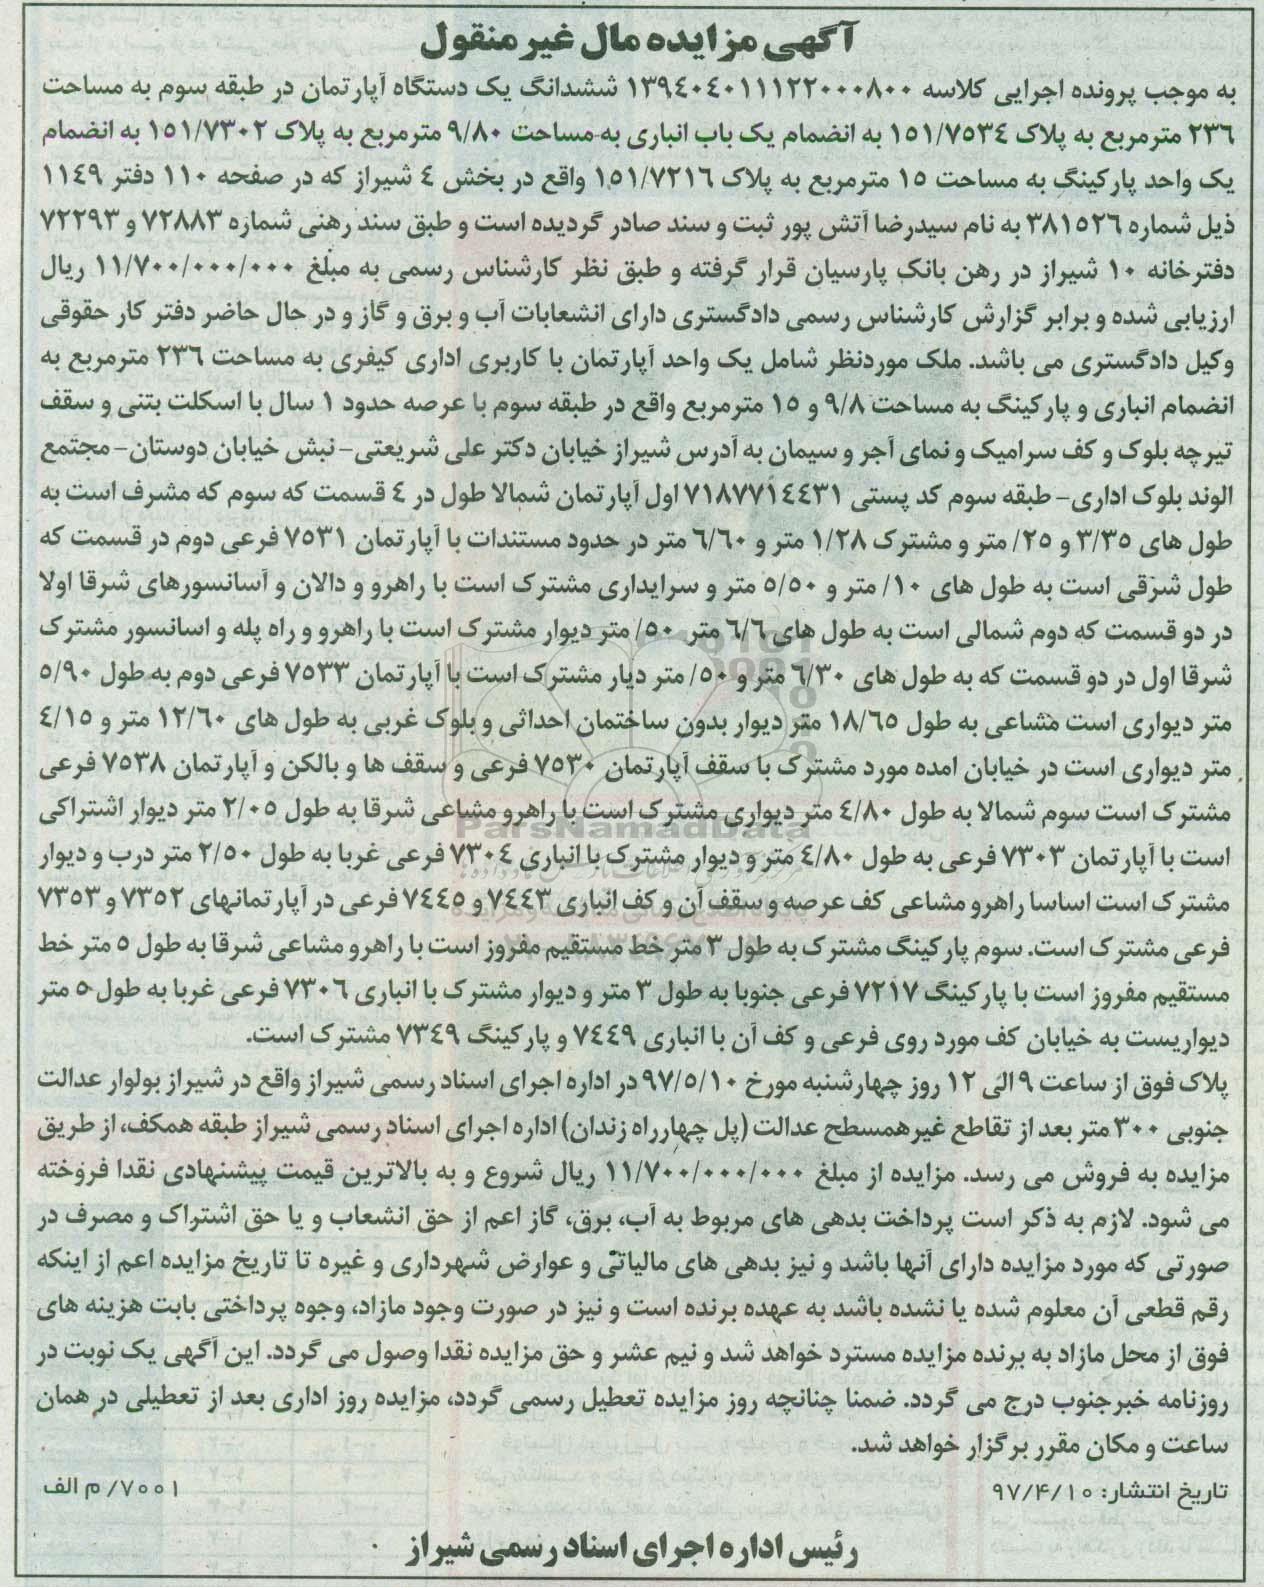 آگهی مزایده مال غیر منقول
به موجب پرونده اجرایی کلاسه ۱۳۹٤۰٤۰۱۱۱۲۲۰۰۰۸۰۰ ششدانگ یک دستگاه آپارتمان در طبقه سوم به مساحت
۲۳٦ مترمربع به پلاک ۱٥۱/۷٥۳٤ به انضمام یک باب انباری به مساحت ۹/۸۰ مترمربع به پلاک ۱٥۱/۷۳۰۲ به انضمام
یک واحد پارکینگ به مساحت ۱٥ مترمربع به پلاک ۱٥۱/۷۲۱٦ واقع در بخش ٤ شیراز که در صفحه ۱۱۰ دفتر ۱۱٤۹
ذیل شماره ۳۸۱٥۲٦ به نام سیدرضا آتش پور ثبت و سند صادر گردیده است و طبق سند رهنی شماره ۷۲۸۸۳ و ۷۲۲۹۳
دفترخانه ۱۰ شیراز در رهن بانک پارسیان قرار گرفته و طبق نظر کارشناس رسمی به مبلغ ۱۱/۷۰۰/۰۰۰/۰۰۰ ریال
ارزیابی شده و برابر گزارش کارشناس رسمی دادگستری دارای انشعابات آب و برق و گاز و در حال حاضر دفتر کار حقوقی
وکیل دادگستری می باشد. ملک موردنظر شامل یک واحد آپارتمان با کاربری اداری کیفری به مساحت ۲۳٦ مترمربع به
انضمام انباری و پارکینگ به مساحت ۹/۸ و ۱٥ مترمربع واقع در طبقه سوم با عرصه حدود ۱ سال با اسکلت بتنی و سقف
تیرچه بلوک و کف سرامیک و نمای آجر و سیمان به آدرس شیراز خیابان دکتر علی شریعتی- نبش خیابان دوستان- مجتمع
الوند بلوک اداری- طبقه سوم کد پستی ۷۱۸۷۷۱٤٤۳۱ اول آپارتمان شمالا طول در ٤ قسمت که سوم که مشرف است به
طول های ۳/۳٥ و ۲٥/ متر و مشترک ۱/۲۸ متر و ٦/٦۰ متر در حدود مستندات با آپارتمان ۷٥۳۱ فرعی دوم در قسمت که
طول شرقی است به طول های ۱۰/ متر و ٥/٥۰ متر و سرایداری مشترک است با راهرو و دالان و آسانسورهای شرقا اولا
در دو قسمت که دوم شمالی است به طول های ٦/٦ متر ٥۰/ متر دیوار مشترک است با راهرو و راه پله و اسانسور مشترک
شرقا اول در دو قسمت که به طول های ٦/۳۰ متر و ٥۰/ متر دیار مشترک است با آپارتمان ۷٥۳۳ فرعی دوم به طول ٥/۹۰
متر دیواری است مشاعی به طول ۱۸/٦٥ متر دیوار بدون ساختمان احداثی و بلوک غربی به طول های ۱۲/٦۰ متر و ٤/۱٥
متر دیواری است در خیابان امده مورد مشترک با سقف آپارتمان ۷٥۳۰ فرعی و سقف ها و بالکن و آپارتمان ۷٥۳۸ فرعی
مشترک است سوم شمالا به طول ٤/۸۰ متر دیواری مشترک است با راهرو مشاعی شرقا به طول ۲/۰٥ متر دیوار اشتراکی
است با آپارتمان ۷۳۰۳ فرعی به طول ٤/۸۰ متر و دیوار مشترک با انباری ۷۳۰٤ فرعی غربا به طول ۲/٥۰ متر درب و دیوار
مشترک است اساسا راهرو مشاعی کف عرصه و سقف آن و کف انباری ۷٤٤۳ و ۷٤٤٥ فرعی در آپارتمانهای ۷۳٥۲ و ۷۳٥۳
فرعی مشترک است. سوم پارکینگ مشترک به طول ۳ متر خط مستقیم مفروز است با راهرو مشاعی شرقا به طول ٥ متر خط
مستقیم مفروز است با پارکینگ ۷۲۱۷ فرعی جنوبا به طول ۳ متر و دیوار مشترک با انباری ۷۳۰٦ فرعی غربا به طول ٥ متر
دیواریست به خیابان کف مورد روی فرعی و کف آن با انباری ۷٤٤۹ و پارکینگ ۷۳٤۹ مشترک است.
پلاک فوق از ساعت ۹ الی ۱۲ روز چهارشنبه مورخ ۹۷/٥/۱۰ در اداره اجرای اسناد رسمی شیراز واقع در شیراز بولوار عدالت
جنوبی ۳۰۰ متر بعد از تقاطع غیرهمسطح عدالت (پل چهارراه زندان) اداره اجرای اسناد رسمی شیراز طبقه همکف، از طریق
مزایده به فروش می رسد. مزایده از مبلغ ۱۱/۷۰۰/۰۰۰/۰۰۰ ریال شروع و به بالاترین قیمت پیشنهادی نقدا فروخته
می شود. لازم به ذکر است پرداخت بدهی های مربوط به آب، برق، گاز اعم از حق انشعاب و یا حق اشتراک و مصرف در
صورتی که مورد مزایده دارای آنها باشد و نیز بدهی های مالیاتی و عوارض شهرداری و غیره تا تاریخ مزایده اعم از اینکه
رقم قطعی آن معلوم شده یا نشده باشد به عهده برنده است و نیز در صورت وجود مازاد، وجوه پرداختی بابت هزینه های
فوق از محل مازاد به برنده مزایده مسترد خواهد شد و نیم عشر و حق مزایده نقدا وصول می گردد. این آگهی یک نوبت در
روزنامه خبرجنوب درج می گردد. ضمنا چنانچه روز مزایده تعطیل رسمی گردد، مزایده روز اداری بعد از تعطیلی در همان
ساعت و مکان مقرر برگزار خواهد شد.
تاریخ انتشار: ۹۷/۴/۱۰
۷۰۰۱/ م الف
رئیس اداره اجرای اسناد رسمی شیراز
ParsNamadData